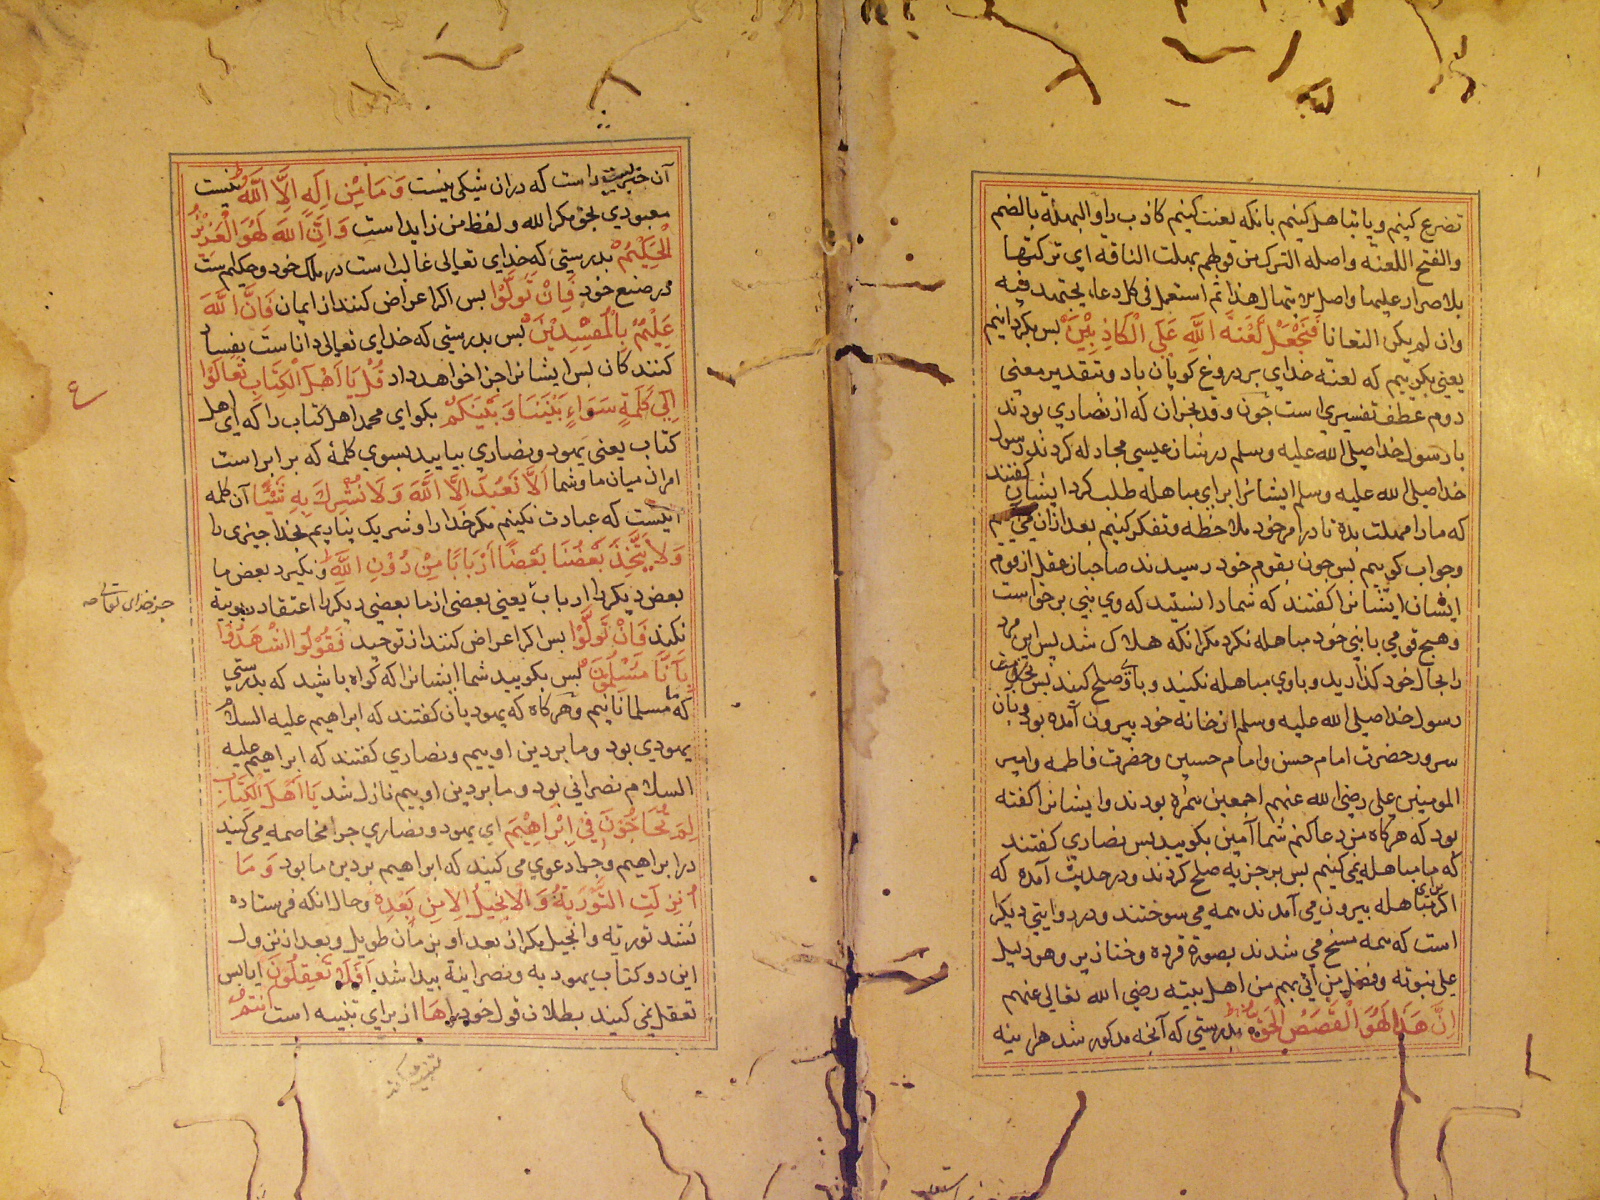 تضرع کنیم و یا تباهل کنیم بانکه لعنت کنیم کاذب را و البهلة بالضم
والفتح اللعنه واصله الترک من قولهم بهلت الناقه ای ترکتها
بلا صرار علیها واصل الابتهال هذا ثم استعمل فی کل دعاء یجتهد فیه
وان لم یکن التعانا فَنَجْعَلْ لَعْنَةَ اللَّهِ عَلَی الْکَاذِبِیْنَ پس بکردانیم
یعنی بکوییم که لعنة خدای بر دروغ کویان باد و بتقدیر معنی
دوم عطف تفسیری است چون وفد نجران که از نصاری بودند
با رسول خدا صلی الله علیه وسلم در شان عیسی مجادله کردند رسول
خدا صلی الله علیه وسلم ایشانرا برای مباهله طلب کرد ایشان کفتند
که مارا مهلت بده تا در امر خود ملاحظه و تفکر کنیم بعد ازان می آییم
و جواب کوییم پس چون بقوم خود رسیدند صاحبان عقل از قوم
ایشان ایشانرا کفتند که شما دانستید که وی نبی برحق است
و هیچ قومی با نبی خود مباهله نکرد مکر انکه هلاک شد پس این مرد
را بحال خود کذارید و با وی مباهله نکنید و با وی صلح کنید پس
رسول خدا صلی الله علیه وسلم از خانه خود بیرون آمده بود و بآن
سرور حضرت امام حسن و امام حسین و حضرت فاطمه و امیر
المومنین علی رضی الله عنهم اجمعین همراه بودند و ایشانرا کفته
بود که هرکاه من دعا کنم شما آمین بکویید پس نصاری کفتند
که ما مباهله نمی کنیم پس بر جزیه صلح کردند و در حدیث آمده که
اکر برای مباهله بیرون می آمدند همه می سوختند و در روایتی دیکر
است که همه مسخ می شدند بصورة قرده و خنازیر و هو دلیل
علی نبوته و فضل من اتی بهم من اهل بیته رضی الله تعالی عنهم
اِنَّ هَذَا لَهُوَ الْقَصَصُ الْحَقُّ بدرستی که آنچه مذکور شد هراینه
آن خبریست راست که دران شکی نیست وَمَا مِنْ اِلَهٍ اِلَّا اللَّهُ نیست
معبودی بحق مکر الله و لفظ من زاید است وَاِنَّ اللهَ لَهُوَ الْعَزِیْزُ
الْحَکِیْمُ بدرستی که خدای تعالی غالب است در ملک خود و حکیم ست
در صنع خود فَاِنْ تَوَلَّوْا پس اکر اعراض کنند از ایمان فَاِنَّ اللَّهَ
عَلِیْمٌ بِالْمُفْسِدِیْنَ پس بدرستی که خدای تعالی دانا ست بفساد
کنندکان پس ایشانرا جزا خواهد داد قُلْ یَا اَهْلَ الْکِتَابِ تَعَالَوْا
اِلَی کَلِمَةٍ سَوَاءٍ بَیْنَنَا وَبَیْنَکُمْ بکو ای محمد اهل کتاب را که ای اهل
کتاب یعنی یهود و نصاری بیایید بسوی کلمهٔ که برابر است
امران میان ما و شما اَلَّا نَعْبُدَ اِلَّا اللَّهَ وَلَا نُشْرِکَ بِهِ شَیْئًا آن کلمه
اینست که عبادت نکنیم مکر خدا را و شریک نیاریم بخدا چیزی را
وَلَا یَتَّخِذَ بَعْضُنَا بَعْضًا اَرْبَابًا مِنْ دُوْنِ اللَّهِ و نکیرد بعض ما
بعض دیکر را ارباب یعنی بعضی از ما بعضی دیکر را اعتقاد ربوبیة
نکند فَاِنْ تَوَلَّوْا پس اکر اعراض کنند از توحید فَقُوْلُوا اشْهَدُوْا
بِاَنَّا مُسْلِمُوْنَ پس بکویید شما ایشانرا که کواه باشید که بدرستی
که ما مسلمانانیم و هرکاه که یهودیان کفتند که ابراهیم علیه السلام
یهودی بود و ما بر دین اوییم و نصاری کفتند که ابراهیم علیه
السلام نصرانی بود و ما بر دین اوییم نازل شد یَا اَهْلَ الْکِتَابِ
لِمَ تُحَاجُّوْنَ فِی اِبْرَاهِیْمَ ای یهود و نصاری چرا مخاصمه می کنید
در ابراهیم و چرا دعوی می کنید که ابراهیم بر دین ما بود وَمَا
اُنْزِلَتِ التَّوْرَیةُ وَالْاِنْجِیْلُ اِلَّا مِنْ بَعْدِهِ و حال انکه فرستاده
نشد توریة و انجیل مکر از بعد او بزمان طویل و بعد از نزول
این دو کتاب یهودیه و نصرانیة پیدا شد اَفَلَا تَعْقِلُوْنَ ایا پس
تعقل نمی کنید بطلان قول خود را هَا از برای تنبیه است اَنْتُمْ
جز خدای تعالی صه
ع